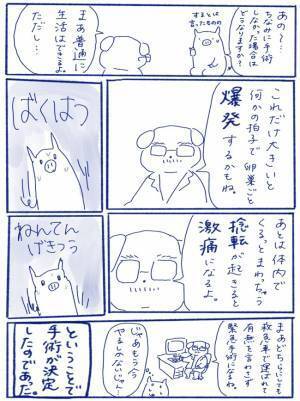 あの〜…
ちなみに手術
しなかった場合は
どうなりますか？
するとは
言ったものの
まあ普通に
生活はできるよ。
ただし…
これだけ大きいと
何かの拍子で卵巣ごと
爆発するかもね。
ばくはつ
あとは体内で
くるっとまわっちゃう
捻転が起きると
激痛になるよ。
ねんてん
げきつう
まあどちらにしても
救急車で運ばれて
有無を言わさず
緊急手術になるね。
じゃあもう今
やるしかないじゃん…
ということで
手術が決定
したのであった。